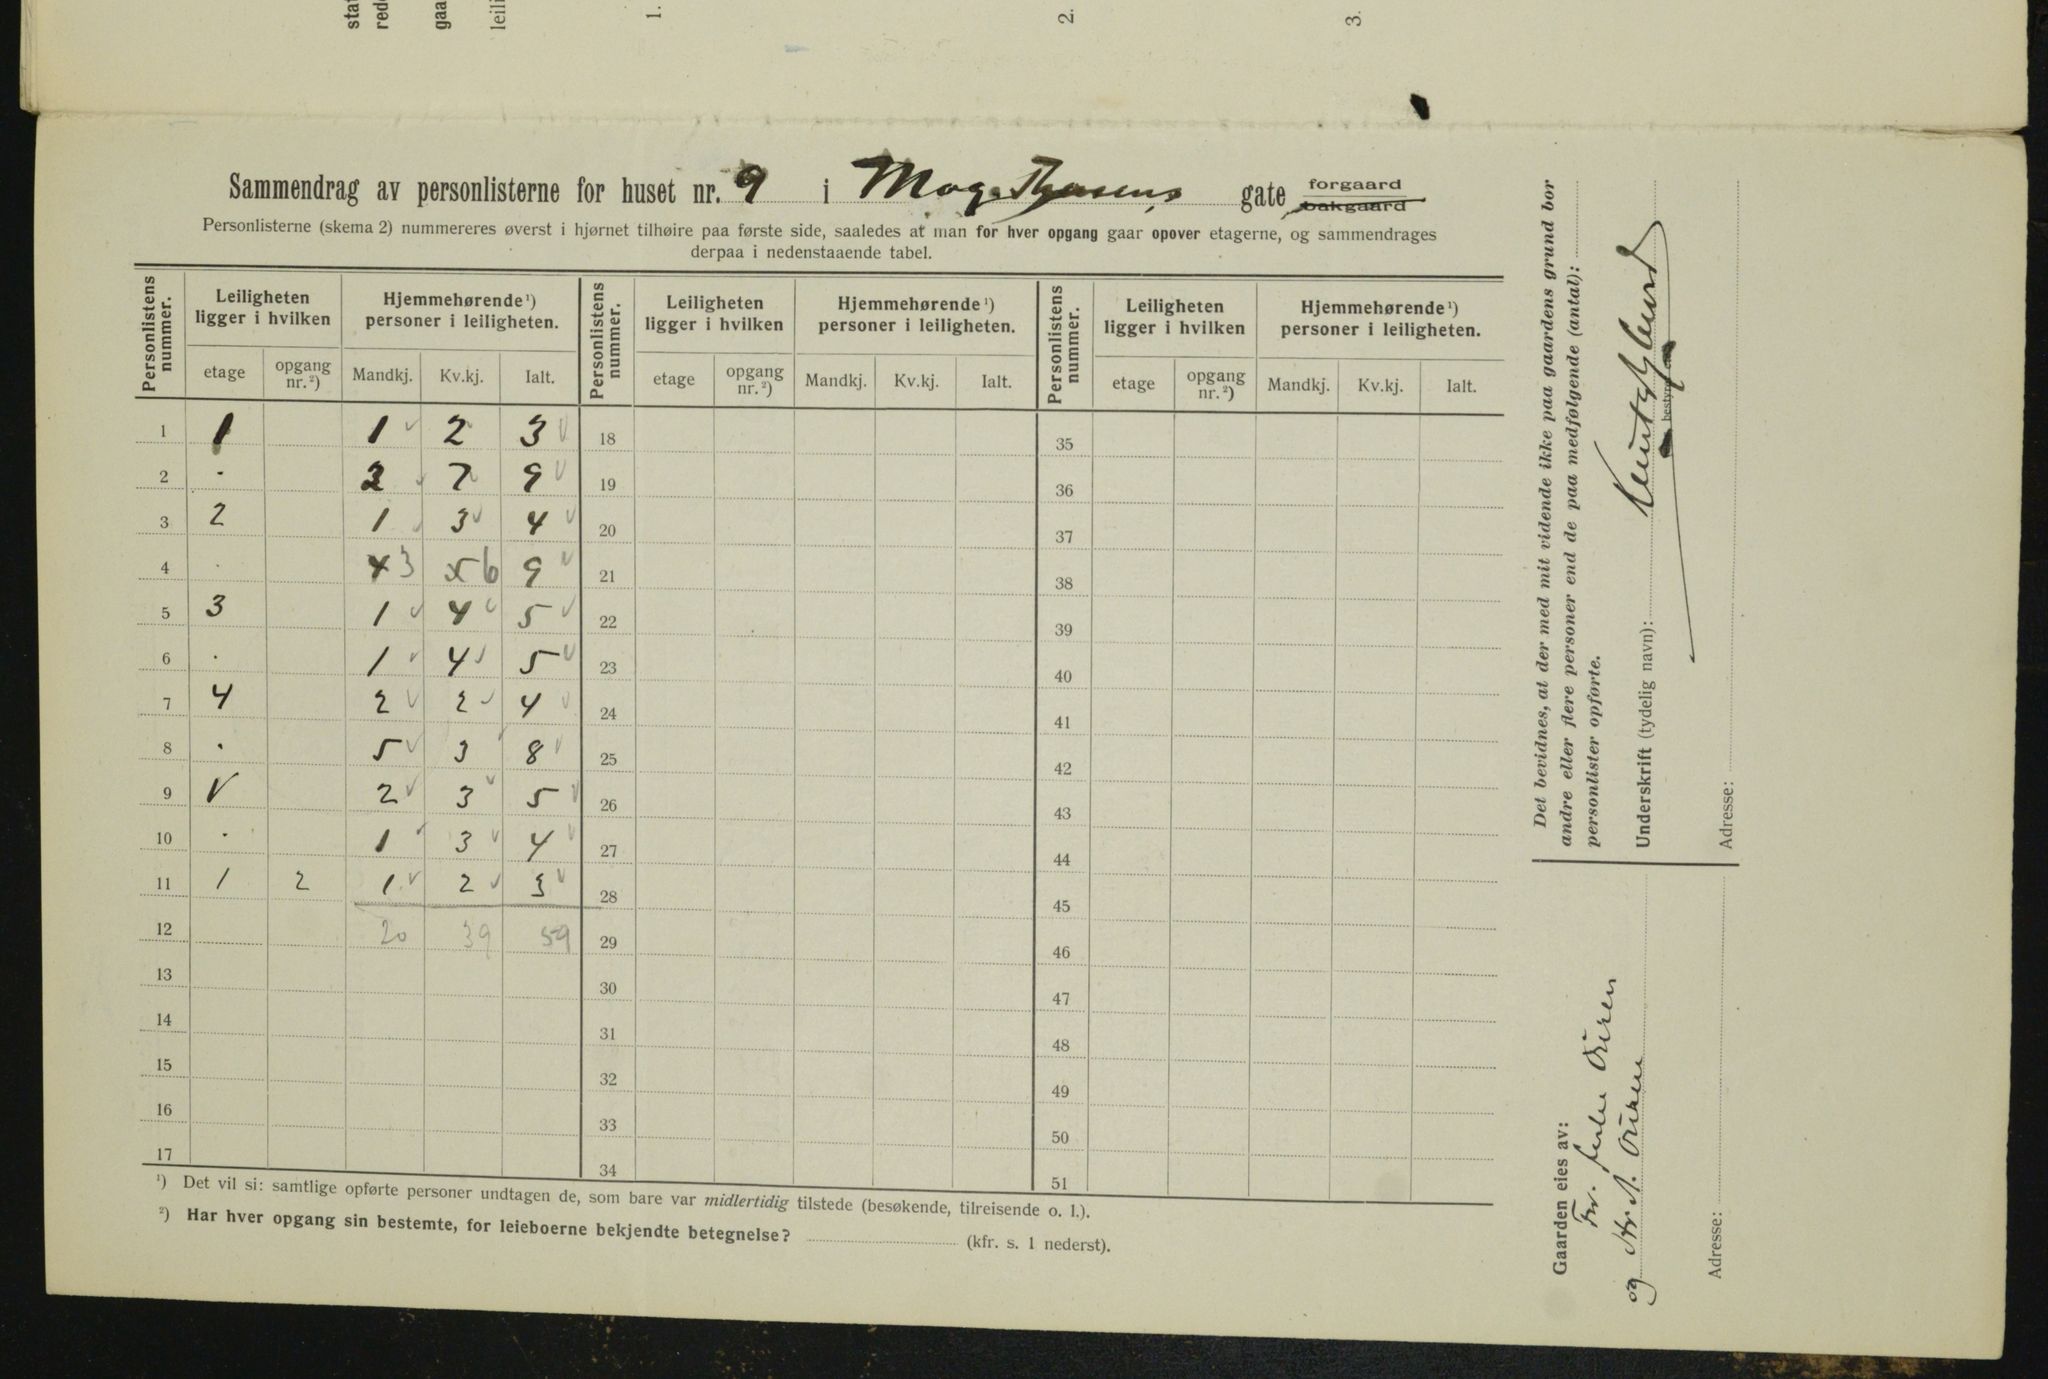 stat
red
gaa
leili
1.
2.
3.
Sammendrag av personlisterne for huset nr. 9 i Mog. Thorsens gate forgaard bakgaard
Personlisterne (skema 2) nummereres øverst i hjørnet tilhøire paa første side, saaledes at man for hver opgang gaar opover etagerne, og sammendrages
derpaa i nedenstaaende tabel.
Personlistens nummer. Leiligheten ligger i hvilken Hjemmehørende ¹) personer i leiligheten. Personlistens nummer. Leiligheten ligger i hvilken Hjemmehørende ¹) personer i leiligheten. Personlistens nummer. Leiligheten ligger i hvilken Hjemmehørende ¹) personer i leiligheten.
etage opgang nr. ²) Mandkj. Kv.kj. Ialt. etage opgang nr. ²) Mandkj. Kv.kj. Ialt. etage opgang nr. ²) Mandkj. Kv.kj. Ialt.
1 1 1 2 3 18 35
2 . 2 7 9 19 36
3 2 1 3 4 20 37
4 . 4 3 5 6 9 21 38
5 3 1 4 5 22 39
6 . 1 4 5 23 40
7 4 2 2 4 24 41
8 . 5 3 8 25 42
9 V 2 3 5 26 43
10 . 1 3 4 27 44
11 1 2 1 2 3 28 45
12 20 39 59 29 46
13 30 47
14 31 48
15 32 49
16 33 50
17 34 51
¹) Det vil si: samtlige opførte personer undtagen de, som bare var midlertidig tilstede (besøkende, tilreisende o. l.).
²) Har hver opgang sin bestemte, for leieboerne bekjendte betegnelse? (kfr. s. 1 nederst).
Det bevidnes, at der med mit vidende ikke paa gaardens grund bor
andre eller flere personer end de paa medfølgende (antal):
personlister opførte.
Underskrift (tydelig navn):
bestyrer
Adresse:
Gaarden eies av:
Fr.
og
Adresse: